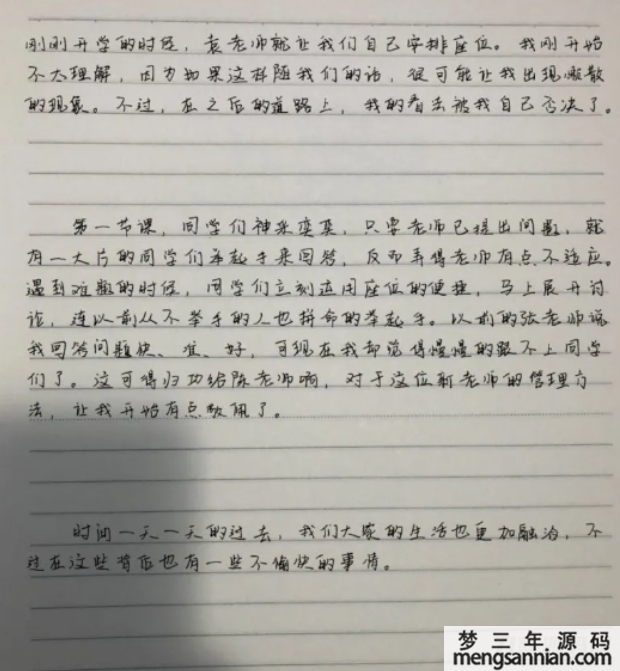 刚刚开学的时候，袁老师就让我们自己安排座位。我刚开始
不太理解，因为如果这样随我们的话，很可能让我出现懒散
的现象。不过，在之后的道路上，我的看法被我自己否决了。
第一节课，同学们神采奕奕，只要老师已提出问题，就
有一大片的同学们举起手来回答，反而弄得老师有点不适应。
遇到难题的时候，同学们立刻运用座位的便捷，马上展开讨
论，连以前从不举手的人也拼命的举起手。以前的张老师说
我回答问题快、准、好，可现在我却觉得慢慢的跟不上同学
们了。这可得归功给陈老师啊，对于这位新老师的管理方
法，让我开始有点敬佩了。
时间一天一天的过去，我们大家的生活也更加融洽，不
过在这些背后也有一些不愉快的事情。
梦三年源码
mengsannian.com